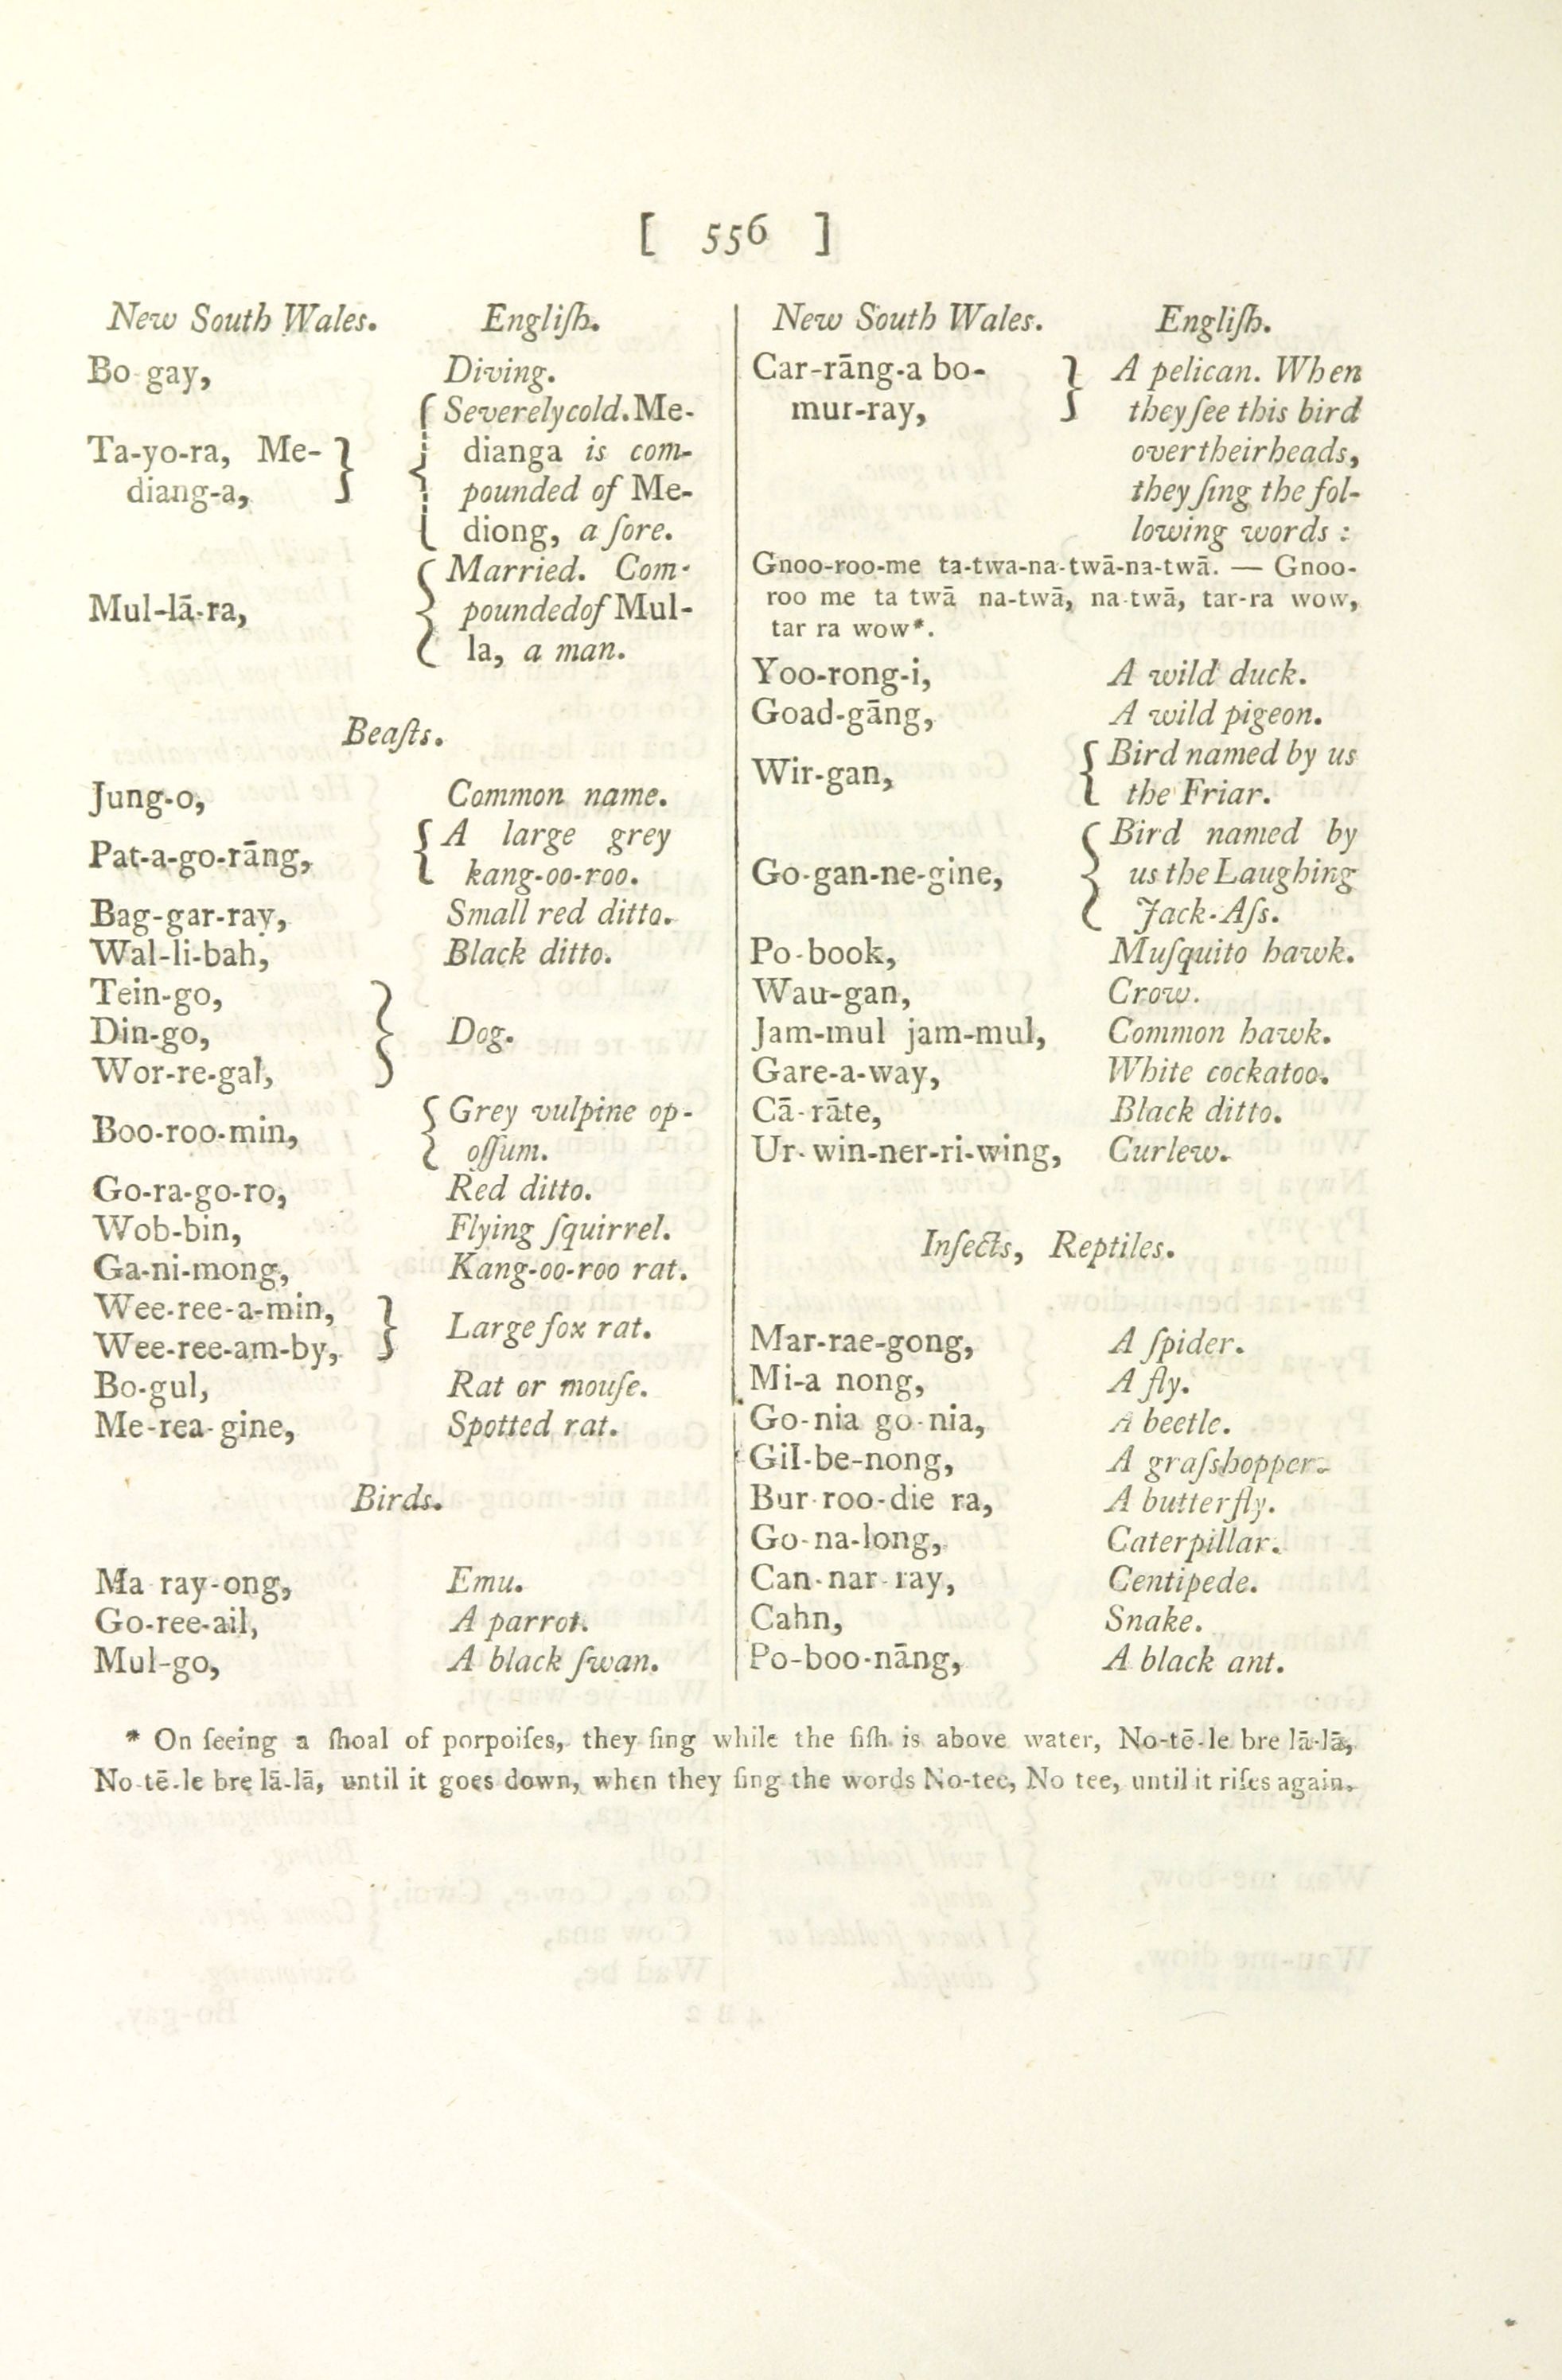 [ 556 ]
New South Wales. Engliſh.
Bo gay, Diving.
Ta-yo-ra, Me-
diang-a,
Severely cold. Me-
dianga is com-
pounded of Me-
diong, a ſore.
Mul-lā-ra,
Married. Com-
pounded of Mul-
la, a man.
Beaſts.
Jung-o, Common name.
Pat-a-go-rāng,
A large grey
kang-oo-roo.
Bag-gar-ray, Small red ditto.
Wal-li-bah, Black ditto.
Tein-go,
Din-go, Dog.
Wor-re-gal,
Boo-roo-min,
Grey vulpine op-
oſſum.
Go-ra-go-ro, Red ditto.
Wob-bin, Flying ſquirrel.
Ga-ni-mong, Kang-oo-roo rat.
Wee-ree-a-min,
Wee-ree-am-by,
Large fox rat.
Bo-gul, Rat or mouſe.
Me-rea-gine, Spotted rat.
Birds.
Ma ray-ong, Emu.
Go-ree-ail, A parrot.
Mul-go, A black ſwan.
New South Wales. Engliſh.
Car-rāng-a bo- A pelican. When
mur-ray, they ſee this bird
over their heads,
they ſing the fol-
lowing words :
Gnoo-roo-me ta-twa-na-twā-na-twā. — Gnoo-
roo me ta twā na-twā, na-twā, tar-ra wow,
tar ra wow*.
Yoo-rong-i, A wild duck.
Goad-gāng, A wild pigeon.
Wir-gan,
Bird named by us
the Friar.
Go-gan-ne-gine,
Bird named by
us the Laughing
Jack-Aſs.
Po-book, Muſquito hawk.
Wau-gan, Crow.
Jam-mul jam-mul, Common hawk.
Gare-a-way, White cockatoo.
Cā-rāte, Black ditto.
Ur-win-ner-ri-wing, Curlew.
Inſects, Reptiles.
Mar-rae-gong, A ſpider.
Mi-a nong, A fly.
Go-nia go-nia, A beetle.
Gil-be-nong, A graſshopper.
Bur-roo-die ra, A butterfly.
Go-na-long, Caterpillar.
Can-nar-ray, Centipede.
Cahn, Snake.
Po-boo-nāng, A black ant.
* On ſeeing a ſhoal of porpoiſes, they ſing while the fiſh is above water, No-tē-le bre lā-lā,
No-tē-le bre lā-lā, until it goes down, when they ſing the words No-tee, No tee, until it riſes again.